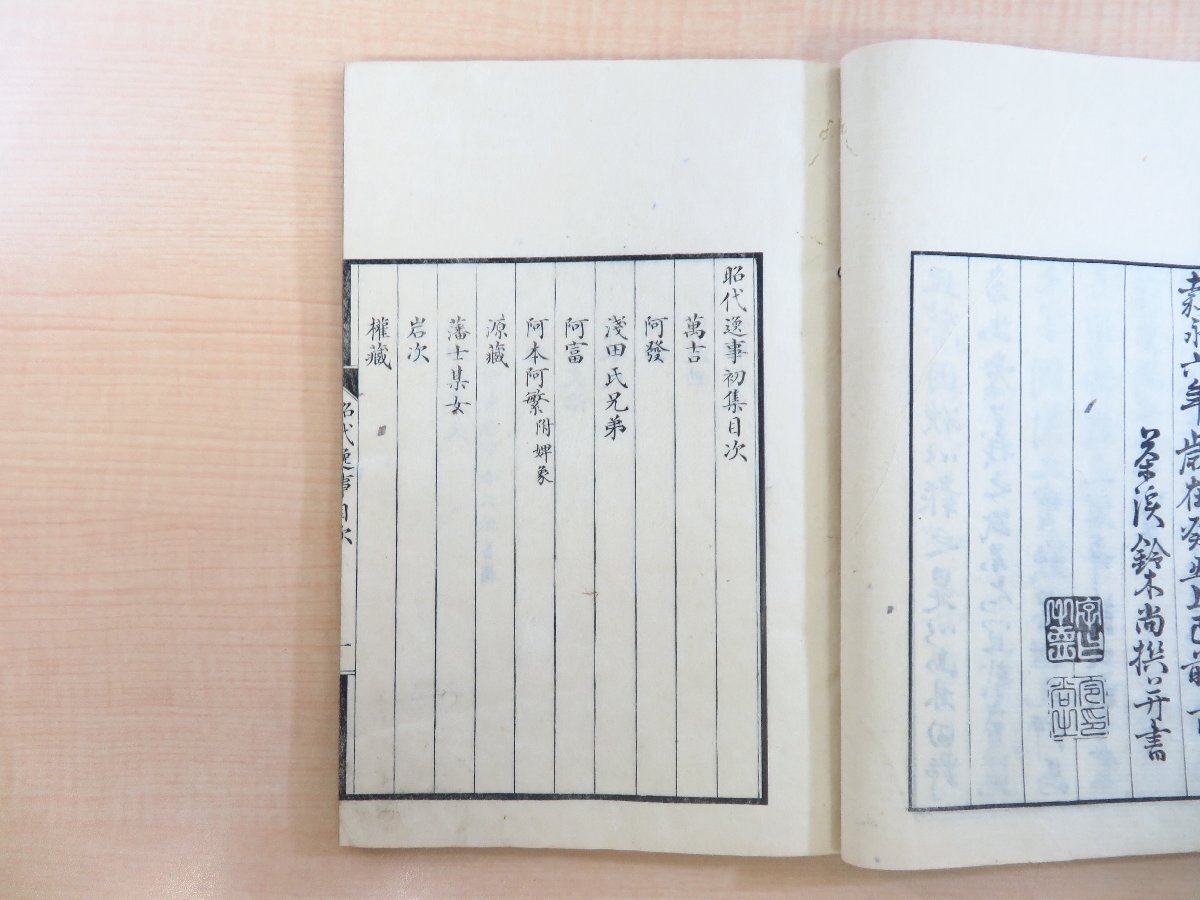 嘉永六年歳在癸丑上巳前一
茶溪鈴木尚撰并書
昭代逸事初集目次
萬吉
阿發
淺田氏兄弟
阿富
阿本阿繁附婢象
源藏
藩士某女
岩次
權藏
昭代逸事目次 一